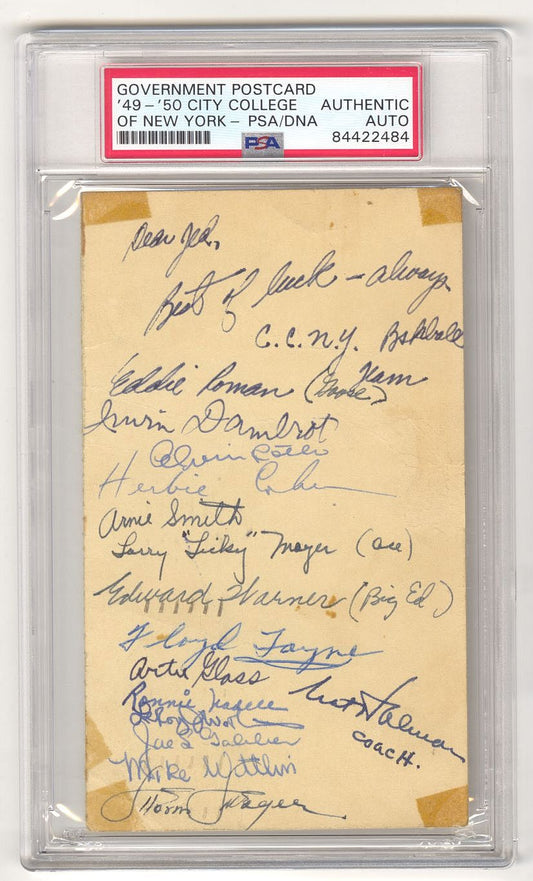 GOVERNMENT POSTCARD
'49-'50 CITY COLLEGE AUTHENTIC
OF NEW YORK - PSA/DNA AUTO
PSA 84422484
Dear Jed,
Best of luck - always
C.C.N.Y. Bsktball
Team
Eddie Roman (Goose)
Irwin Dambrot
Herbie Cohen
Arnie Smith
Larry "Licky" Meyer (Ace)
Edward Warner (Big Ed)
Floyd Layne
Artie Glass
Ronnie Nadell
Nat Holman
COACH.
Mike Wittlin
Norm Mager